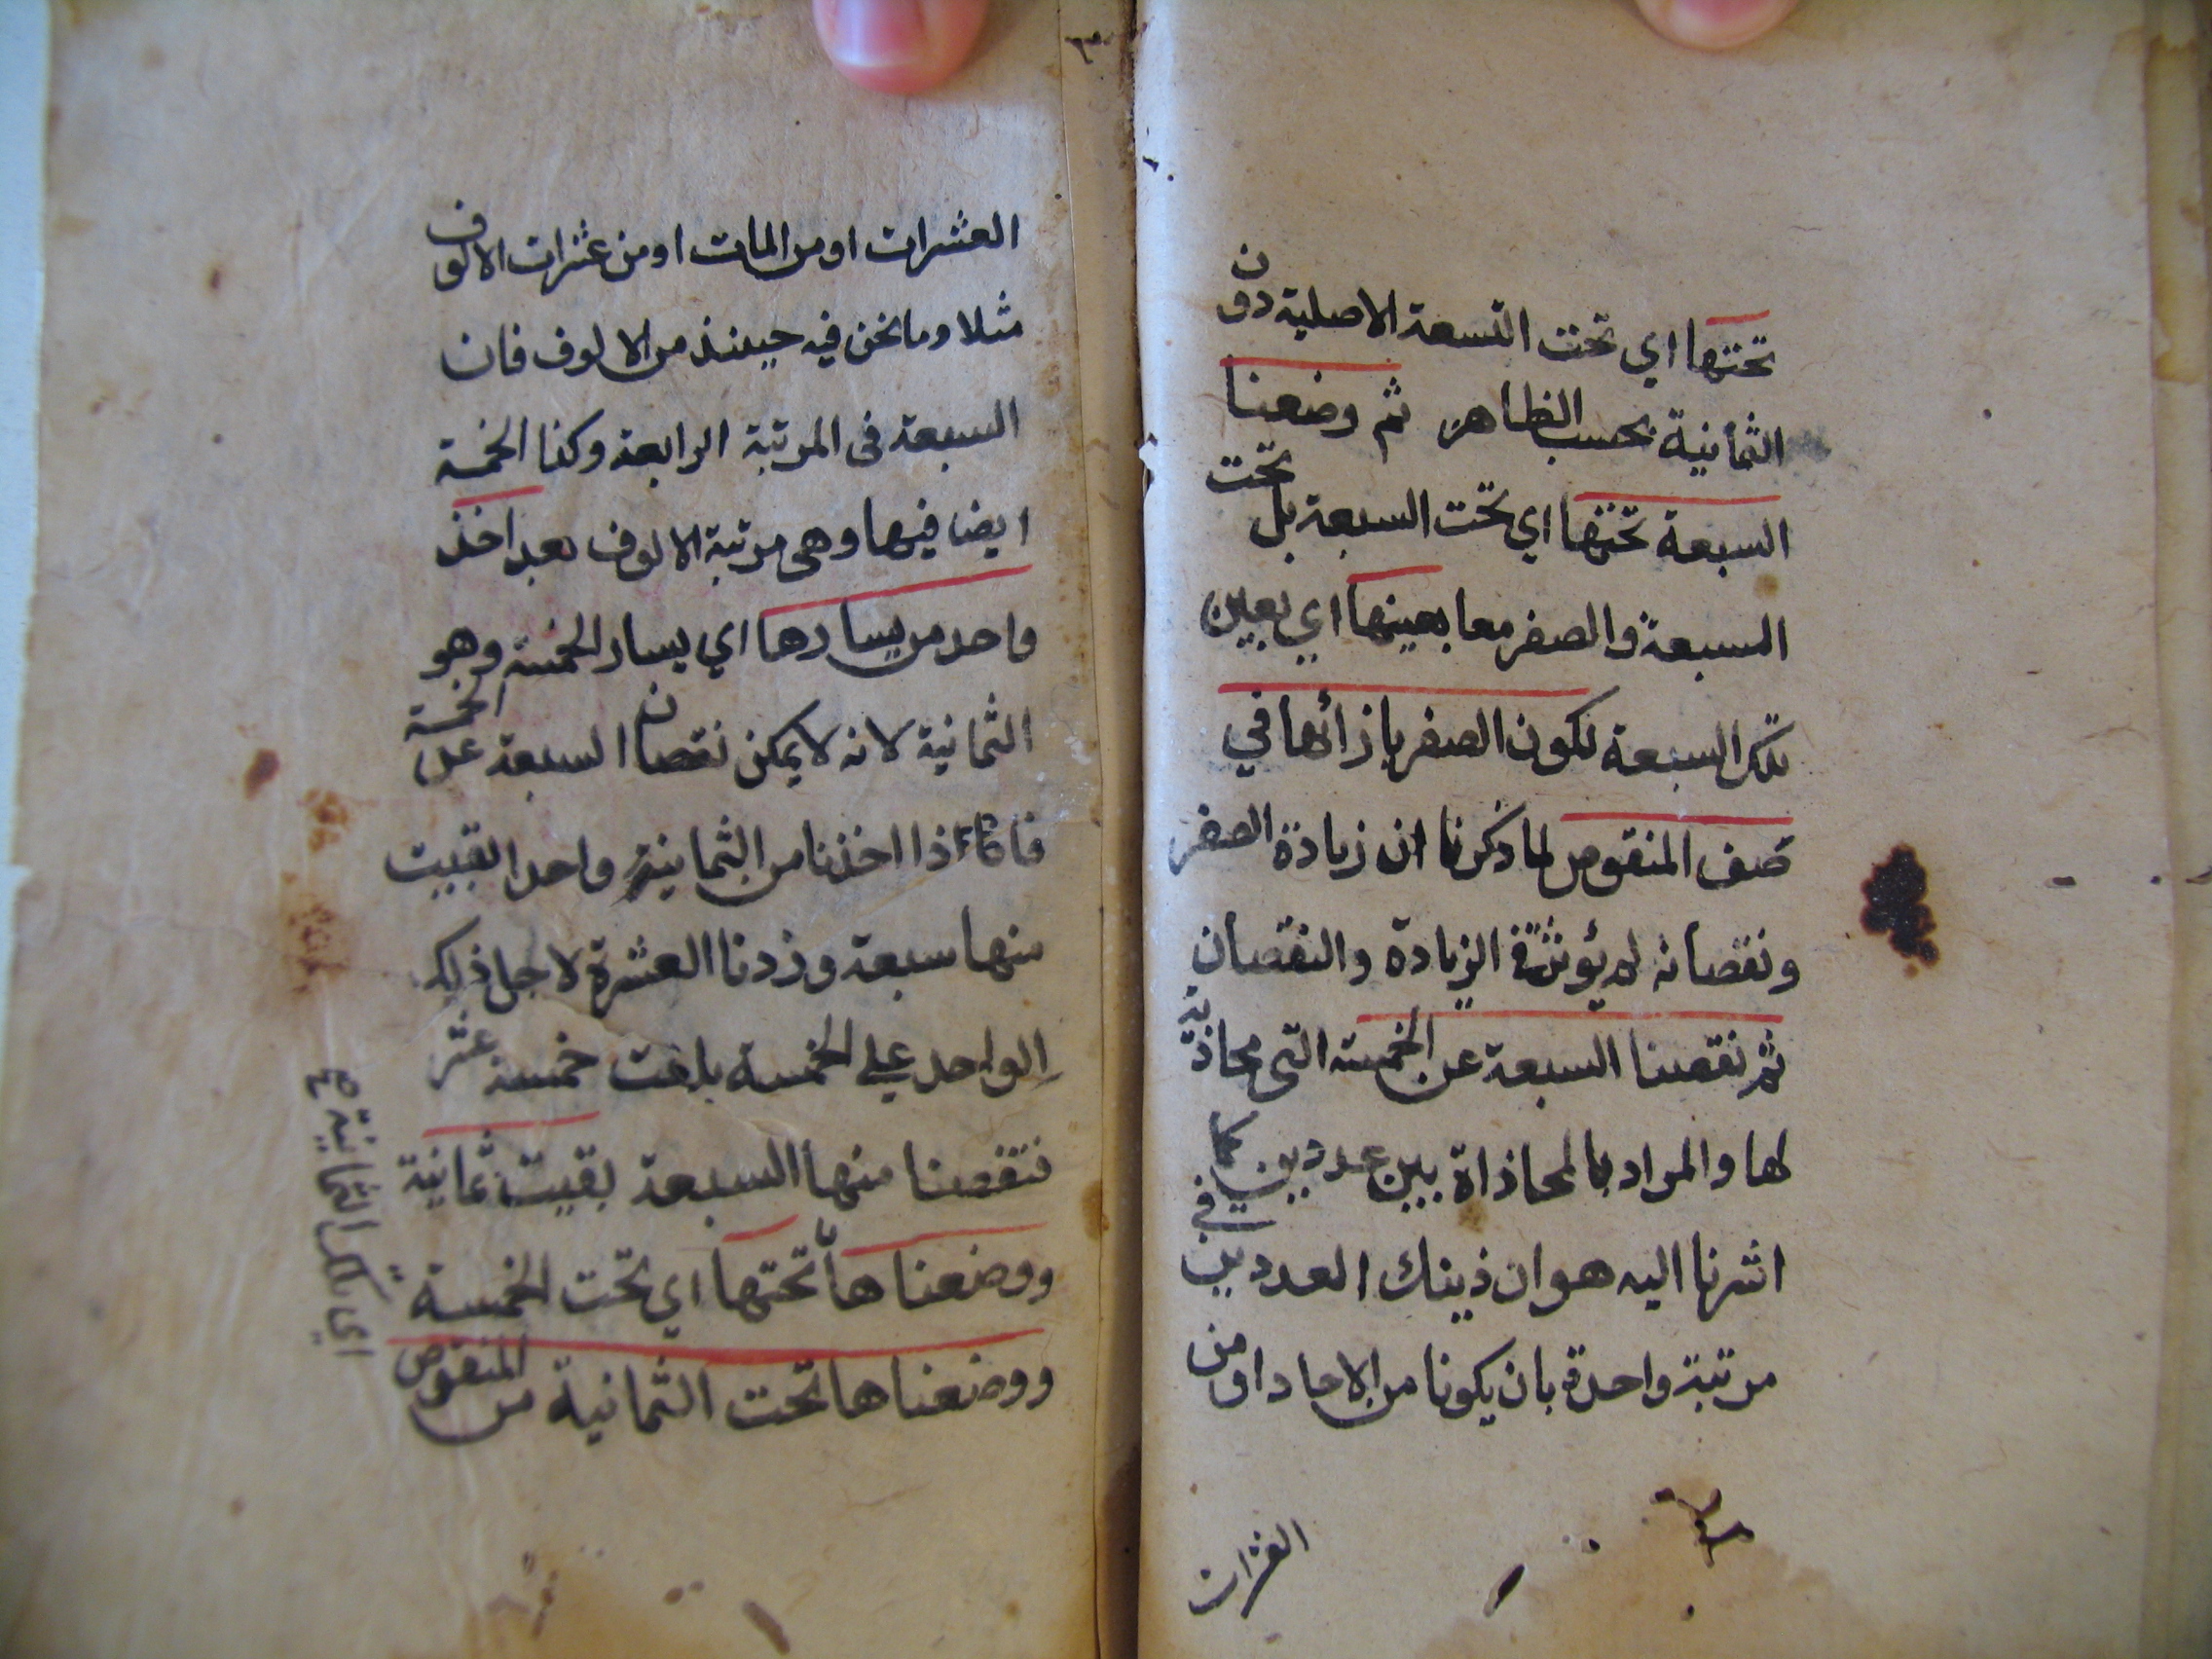 تحتها اي تحت التسعة الاصلية دون
الثمانية بحسب الظاهر ثم وضعنا
السبعة تحتها اي تحت السبعة بل تحت
السبعة والصفر معا بعينها اي بعين
تلك السبعة لكون الصفر بازائها في
صف المنقوص لما ذكرنا ان زيادة الصفر
ونقصانه لم يؤثر في الزيادة والنقصان
ثم نقصنا السبعة عن الخمسة التي محاذية
لها والمراد بالمحاذاة بين عددين كما
اشرنا اليه هو ان ذينك العددين في
مرتبة واحدة بان يكونا من الاحاد او من
العشرات
العشرات او من المات او من عشرات الالوف
مثلا وما نحن فيه حينئذ من الالوف فان
السبعة فى المرتبة الرابعة وكذا الخمسة
ايضا فيها وهى مرتبة الالوف بعد اخذ
واحد من يسارها اي يسار الخمسة وهو
الثمانية لانه لا يمكن نقصان السبعة عن الخمسة
فاذا اخذنا من الثمانية واحدا بقيت
منها سبعة وزدنا العشرة لاجل ذلك
الواحد علي الخمسة بلغت خمسة عشر
نقصنا منها السبعة بقيت ثمانية
ووضعناها تحتها اي تحت الخمسة
ووضعناها تحت الثمانية من المنقوص
اي تلك الثمانية